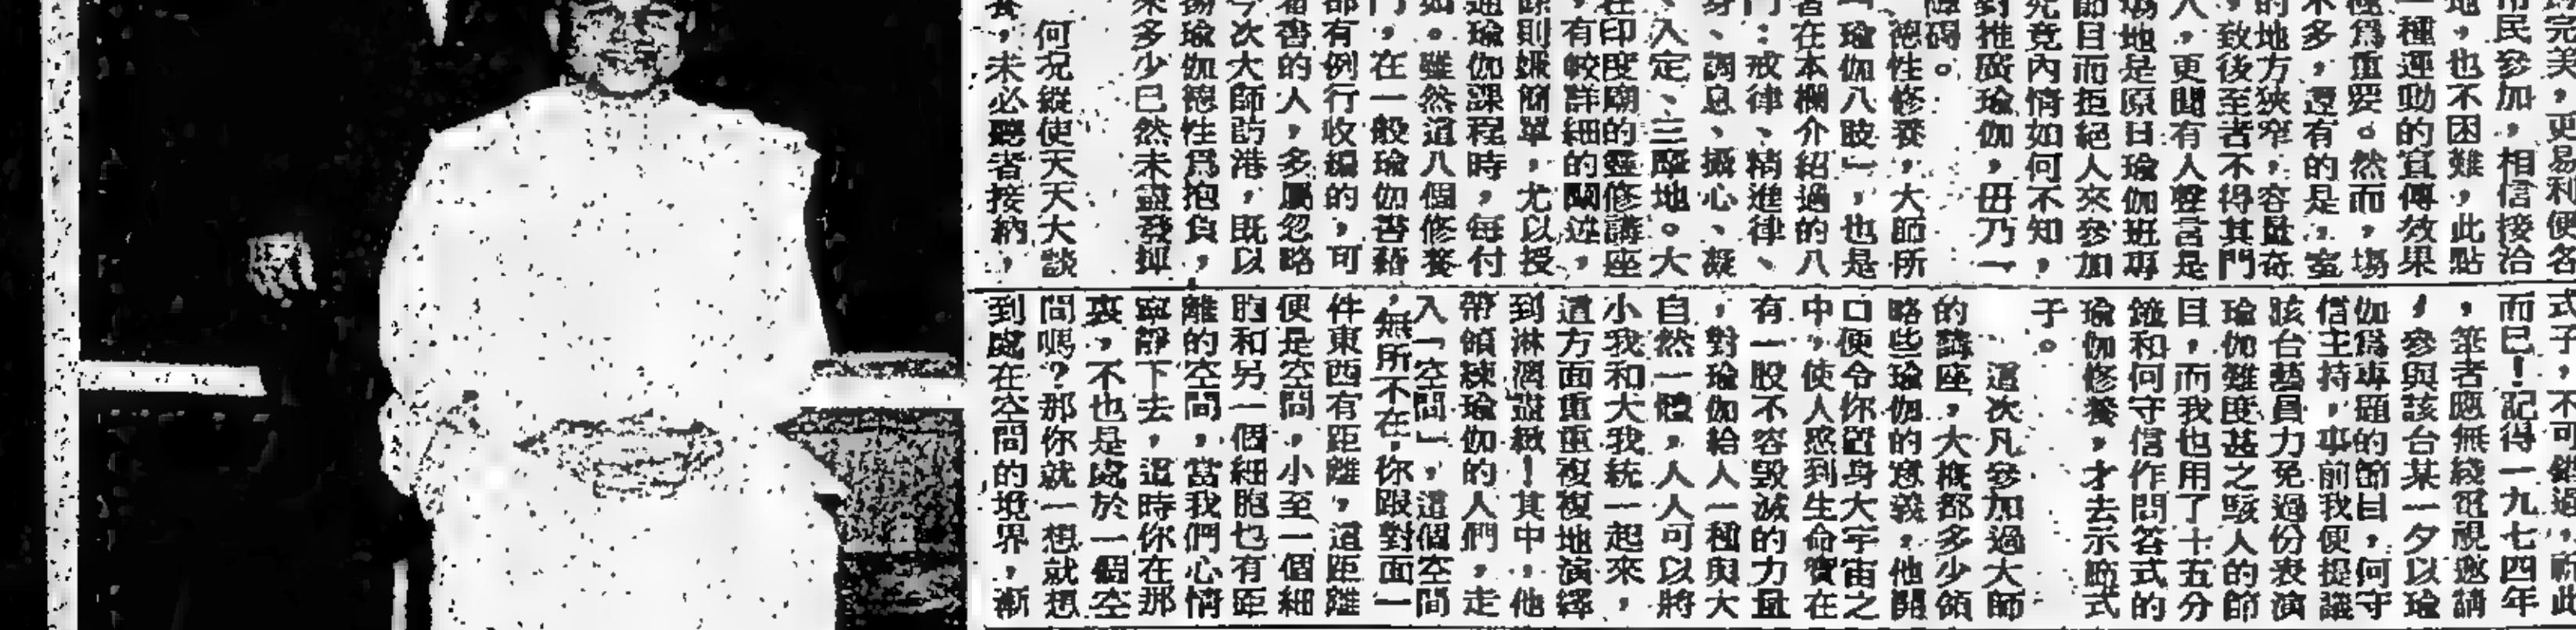 完美,更易利便各
市民參加,相信接洽
地,也不困難,此點
一種運動的宣傳效果
極爲重要。然而,場
不多,還有的是,室
的地方狹窄,容量奇
,致後至者不得其門
人,更聞有人聲言是
場地是原日瑜伽班專
節目而拒絕人來參加
究竟內情如何不知,
對推廣瑜伽,毋乃一
障碍。
德性修養,大師所
「瑜伽八肢」,也是
者在本欄介紹過的八
門:戒律、精進律、
身、調息、攝心、凝
、入定、三摩地。大
在印度廟的靈修講座
,有較詳細的闡述,
餘則嫌簡單,尤以授
通瑜伽課程時,每付
如。雖然這八個修養
門,在一般瑜伽書藉
都有例行收編的,可
看書的人,多屬忽略
今次大師訪港,既以
揚瑜伽德性爲抱負,
來多少已然未盡發揮
何況縱使天天大談
,未必聽者接納,
式子,不可錯過,
而已!記得一九七四年
,筆者應無綫電視邀請
,參與該台某一夕以瑜
伽爲專題的節目,何守
信主持,事前我便提議
該台藝員力免過份表演
瑜伽難度甚之駭人的節
目,而我也用了十五分
鐘和何守信作問答式的
瑜伽修養,才去示範式
子。
這次凡參加過大師
的講座,大概都多少領
略些瑜伽的意義,他開
口便令你置身大宇宙之
中,使人感到生命實在
有一股不容毀滅的力量
,對瑜伽給人一種與大
自然一體,人人可以將
小我和大我統一起來,
這方面重重複複地演繹
到淋漓盡緻!其中,他
帶領練瑜伽的人們,走
入「空間」,這個空間
,無所不在,你跟對面一
件東西有距離,這距離
便是空間,小至一個細
胞和另一個細胞也有距
離的空間,當我們心情
寧靜下去,這時你在那
裏,不也是處於一個空
間嗎?那你就一想就想
到處在空間的境界,漸